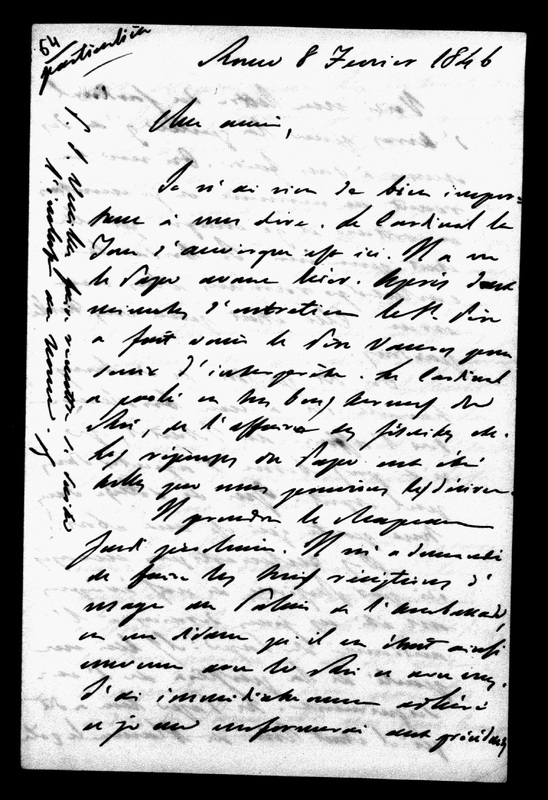 54
particulière
Rome 8 Fevrier 1846
Cher ami,
Je n'ai rien de bien impor-
tant à vous dire. Le Cardinal de
La Tour d'Auvergne est ici. Il a vu
le Pape avant hier. Après deux
minutes d'entretien le St. Père
a fait venir le Père Vaures pour
servir d'interprète. Le Cardinal
a parlé en très bons termes du
Roi, de l'affaire des Jésuites etc.
les réponses du Pape ont été
telles que nous pouvions les désirer.
Il prendra le chapeau
Jeudi prochain. Il m'a demandé
de faire les trois réceptions d'
usage au Palais de l'Ambassade,
en me disant qu'il en était ainsi
convenu avec le Roi et avec vous.
J'ai immédiatement adhéré
et je me conformerai aux précédents
P. S. Veuillez faire remettre la